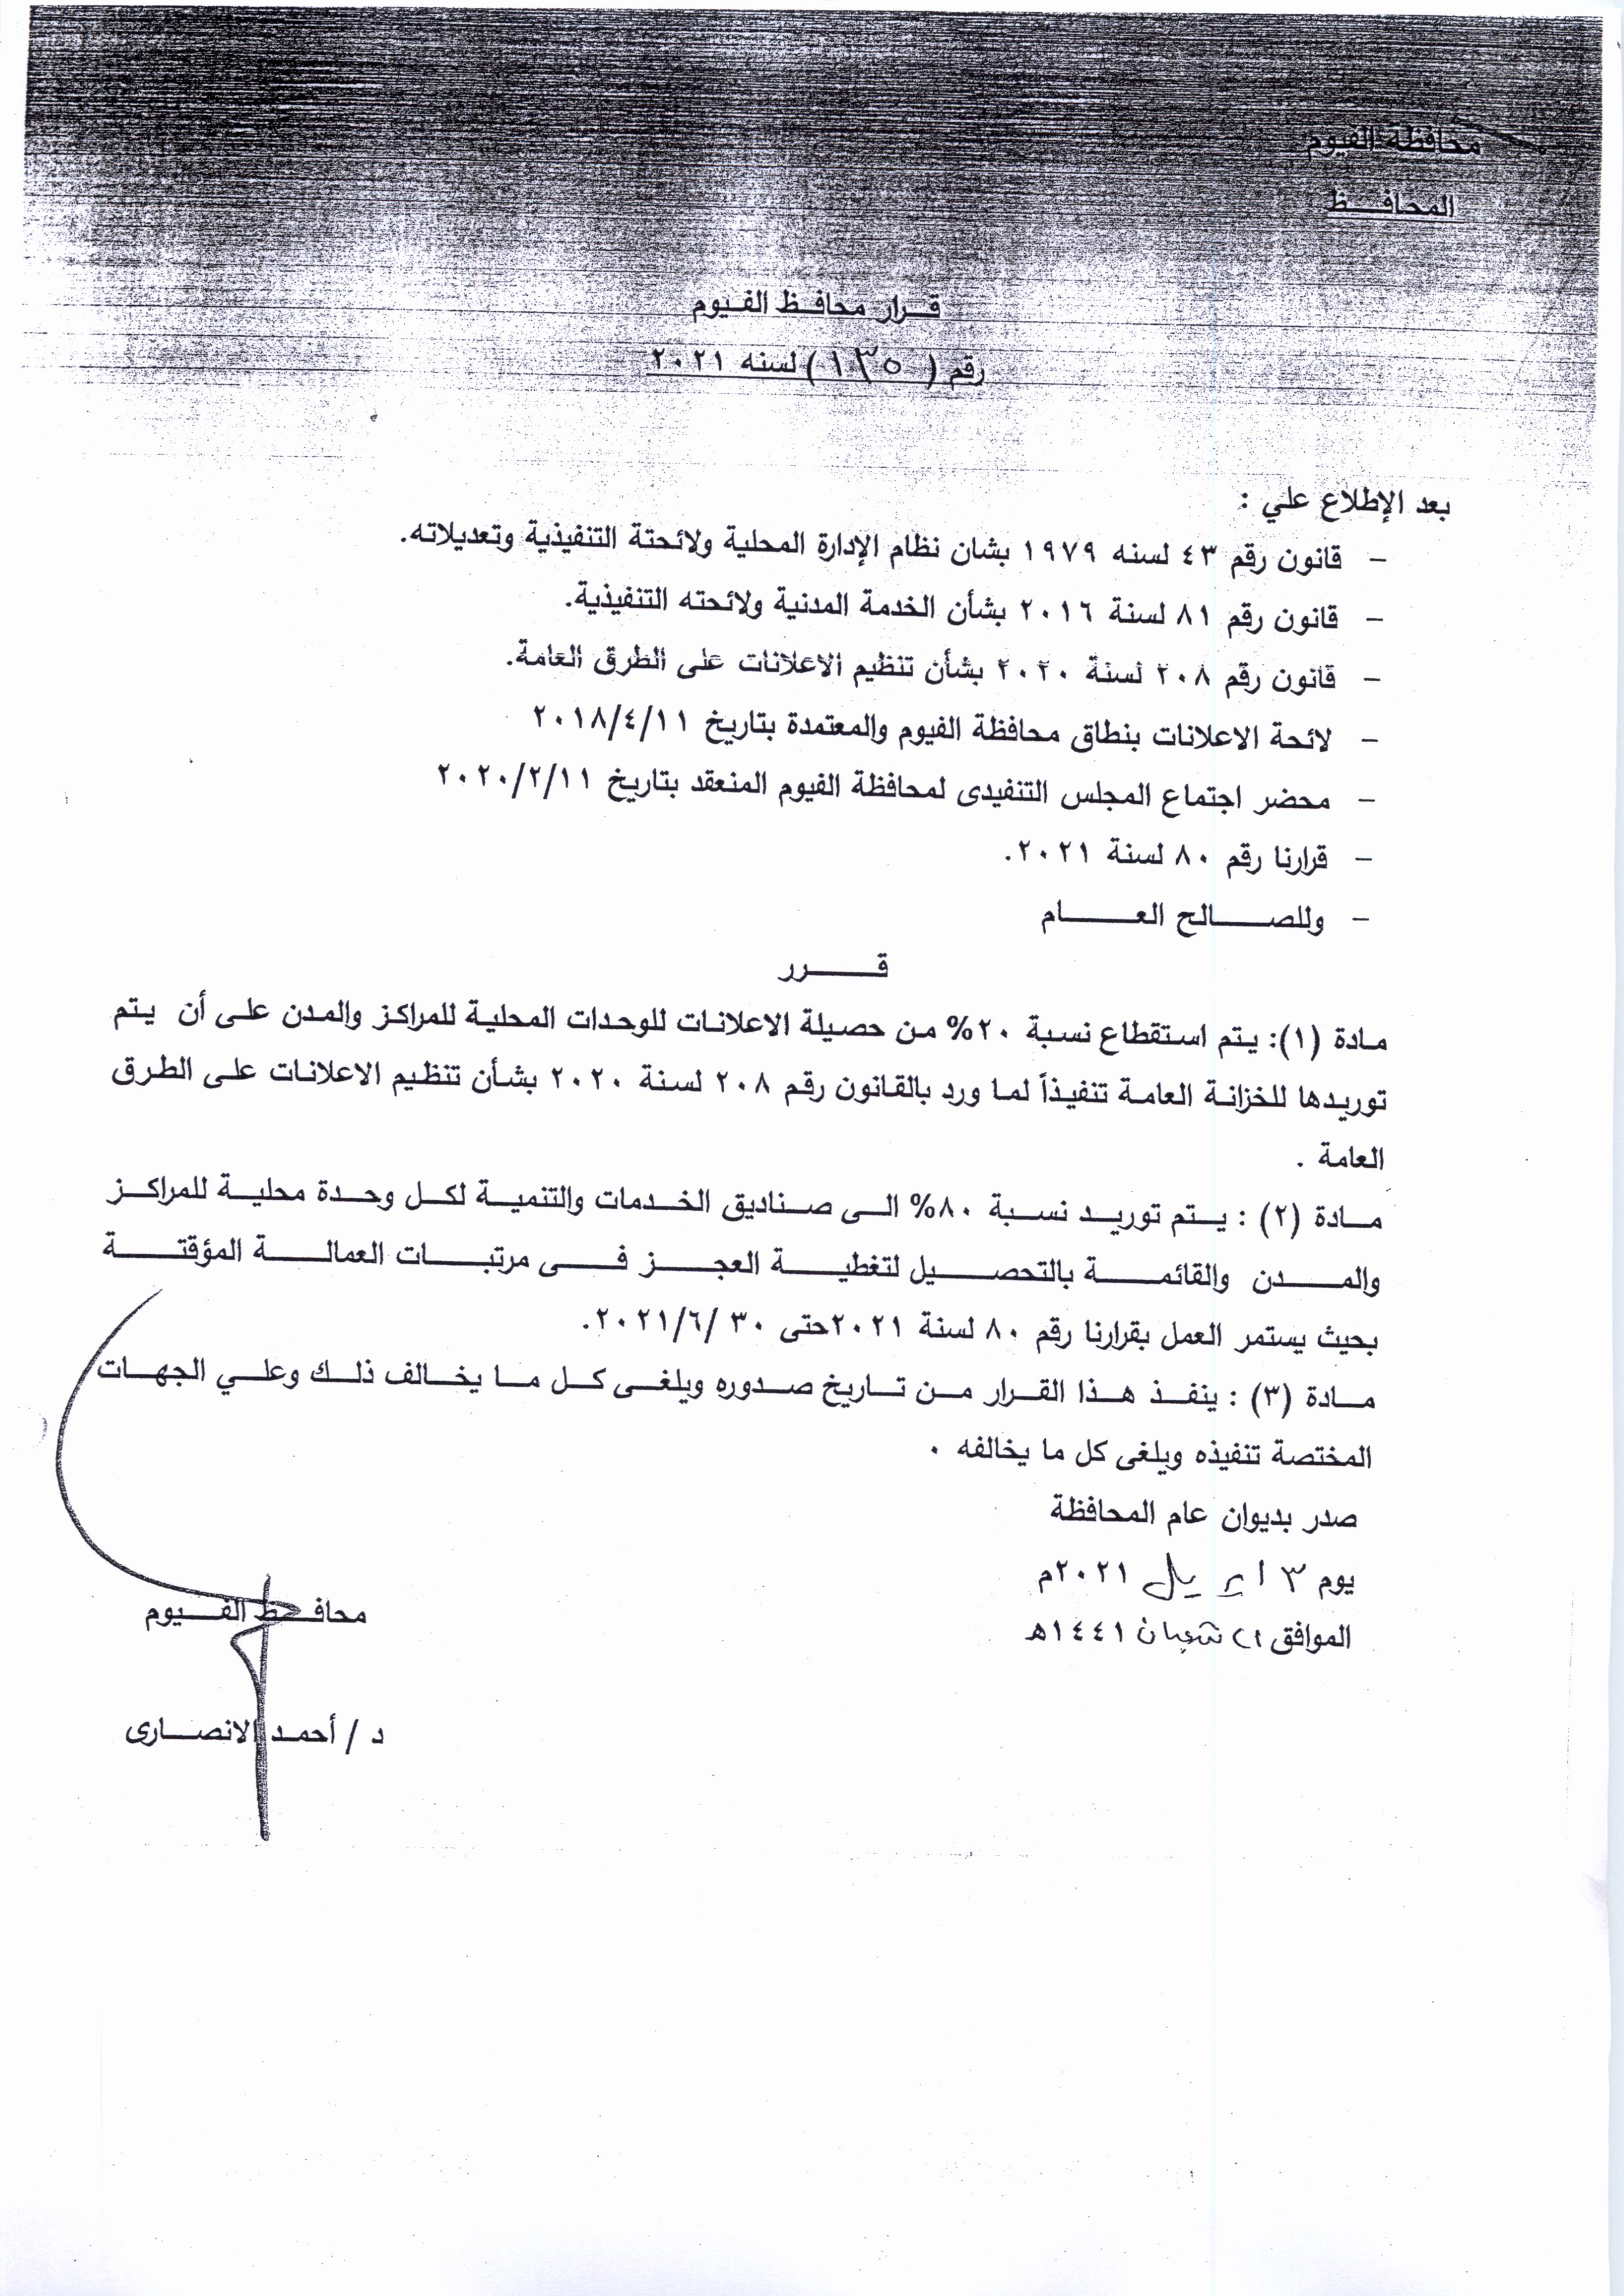 محافظة الفيوم
المحافـــظ
قــرار محافــظ الفـيوم
رقم ( ١٣٥ ) لسنه ٢٠٢١
بعد الإطلاع علي :
- قانون رقم ٤٣ لسنه ١٩٧٩ بشان نظام الإدارة المحلية ولائحتة التنفيذية وتعديلاته.
- قانون رقم ٨١ لسنة ٢٠١٦ بشأن الخدمة المدنية ولائحته التنفيذية.
- قانون رقم ٢٠٨ لسنة ٢٠٢٠ بشأن تنظيم الاعلانات على الطرق العامة.
- لائحة الاعلانات بنطاق محافظة الفيوم والمعتمدة بتاريخ ٢٠١٨/٤/١١
- محضر اجتماع المجلس التنفيدى لمحافظة الفيوم المنعقد بتاريخ ٢٠٢٠/٢/١١
- قرارنا رقم ٨٠ لسنة ٢٠٢١.
- وللصـــــالح العـــــــام
قـــــــرر
مادة (١): يتم استقطاع نسبة ٢٠% من حصيلة الاعلانات للوحدات المحلية للمراكز والمدن على أن يتم
توريدها للخزانة العامة تنفيذاً لما ورد بالقانون رقم ٢٠٨ لسنة ٢٠٢٠ بشأن تنظيم الاعلانات على الطرق
العامة .
مــادة (٢) : يــتم توريــد نســبة ٨٠% الــى صــناديق الخــدمات والتنميــة لكــل وحــدة محليــة للمراكــز
والمـــــدن والقائمـــــة بالتحصـــــيل لتغطيـــــة العجـــــز فـــــى مرتبـــــات العمالـــــة المؤقتـــــة
بحيث يستمر العمل بقرارنا رقم ٨٠ لسنة ٢٠٢١حتى ٣٠ /٢٠٢١/٦.
مــادة (٣) : ينفــذ هــذا القــرار مــن تــاريخ صــدوره ويلغــى كــل مــا يخــالف ذلــك وعلــي الجهــات
المختصة تنفيذه ويلغى كل ما يخالفه .
صدر بديوان عام المحافظة
يوم ٣ ابريل ٢٠٢١م
الموافق ٢١ شعبان ١٤٤١هـ
محافـــظ الفـــيوم
د / أحمـد الانصـــارى